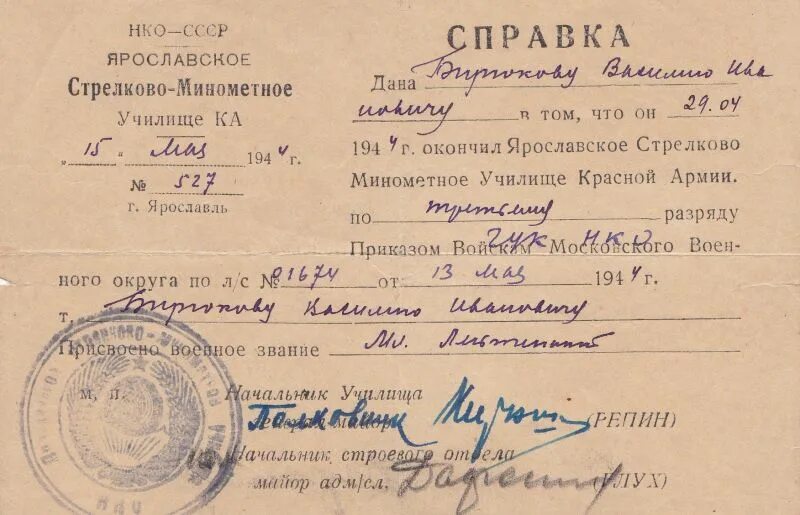 НКО—СССР
ЯРОСЛАВСКОЕ
Стрелково-Минометное
Училище КА
„15" Мая 1944 г.
№ 527
г. Ярославль
СПРАВКА
Дана Бирюкову Василию Ива
новичу в том, что он 29.04
1944 г. окончил Ярославское Стрелково
Минометное Училище Красной Армии.
по третьему разряду
Приказом Войскам ГУК НКО Московского Воен-
ного округа по л/с № 01674 от 13 мая 1944 г.
т, Бирюкову Василию Ивановичу
Присвоено военное звание Мл. Лейтенант
м, п. Начальник Училища
Полковник генерал-майор (РЕПИН)
Начальник строевого отдела
майор адм/сл. (ГЛУХ)